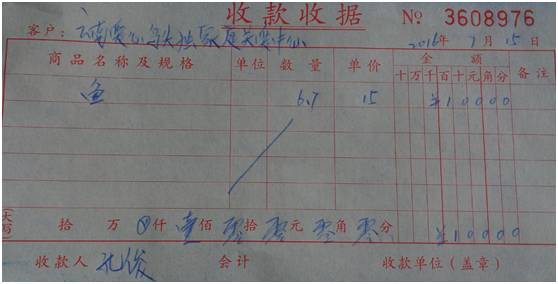 收款收据 № 3608976
客户：云南爱心 失独家庭关爱中心 2016年1月15日
商品名称及规格 单位 数量 单价 金额 备注
十万千百十元角分
鱼 6.7 15 ¥10000
(大写) 拾 万 ⊗仟 壹佰 零拾 零元 零角 零分 ¥10000
收款人 孔俊 会计 收款单位(盖章)